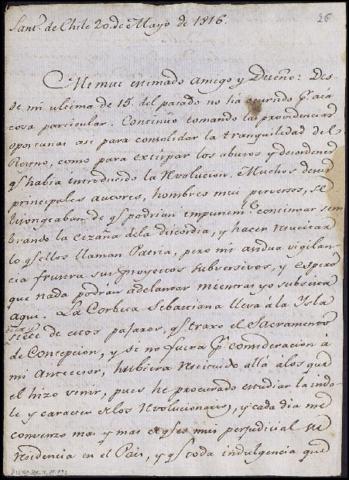 Sant.º de Chile 20. de Mayo de 1816.
26
Mi muc estimado Amigo y Dueño: Des-
de mi ultima de 15. del pasado no ha ocurrido p.r aca
cosa particular. Continúo tomando las providencias
oportunas asi para consolidar la tranquilidad del
Reyno, como para extirpar los abusos y desordenes
q.e había introducido la Revolucion. Muchos de sus
principales autores, hombres muy perversos, se
lisongeaban de q.e podrían impunem.te continuar sem-
brando la cizaña de la discordia, y hacer resucitar
lo q.e ellos llaman Patria, pero mi ardua vigilan-
cia frustra sus proyectos subversivos, y espero
que nada podrán adelantar mientras yo subsista
aqui. La Corbeta Sebastiana lleva á la Isla
siete de estos pajaros, q.e traxo el Sacramento
de Concepcion, y si no fuera p.r consideracion a
mi Antecesor, hubiera remitido allá a los que
el hizo venir, pues he procurado estudiar la indo-
le y caracter de los Revolucionarios, y cada dia me
convenzo mas y mas de q.e es mui perjudicial su
residencia en el Pais, y q.e toda indulgencia que